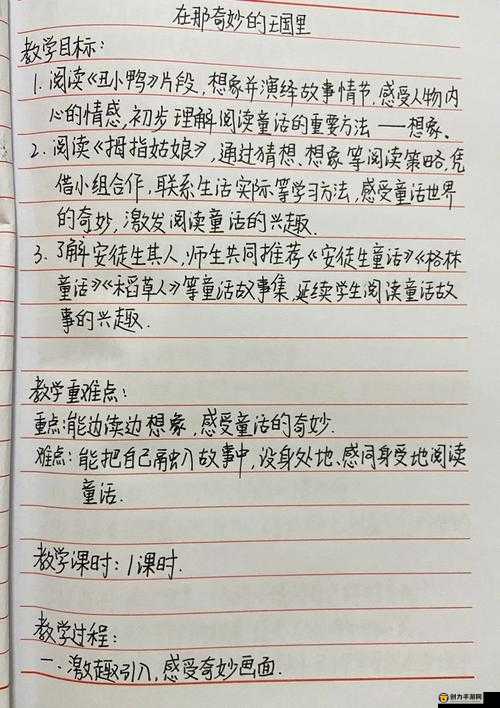 在那奇妙的王国里
教学目标:
1. 阅读《丑小鸭》片段,想象并演绎故事情节,感受人物内
心的情感,初步理解阅读童话的重要方法——想象。
2. 阅读《拇指姑娘》,通过猜想、想象等阅读策略,凭
借小组合作,联系生活实际等学习方法,感受童话世界
的奇妙,激发阅读童话的兴趣.
3. 了解安徒生其人,师生共同推荐《安徒生童话》《格林
童话》《稻草人》等童话故事集,延续学生阅读童话故
事的兴趣.
教学重难点:
重点:能边读边想象,感受童话的奇妙.
难点:能把自己融入故事中,设身处地、感同身受地阅读
童话.
教学课时:1课时.
教学过程:
一.激趣引入,感受奇妙画面.
创力手游网